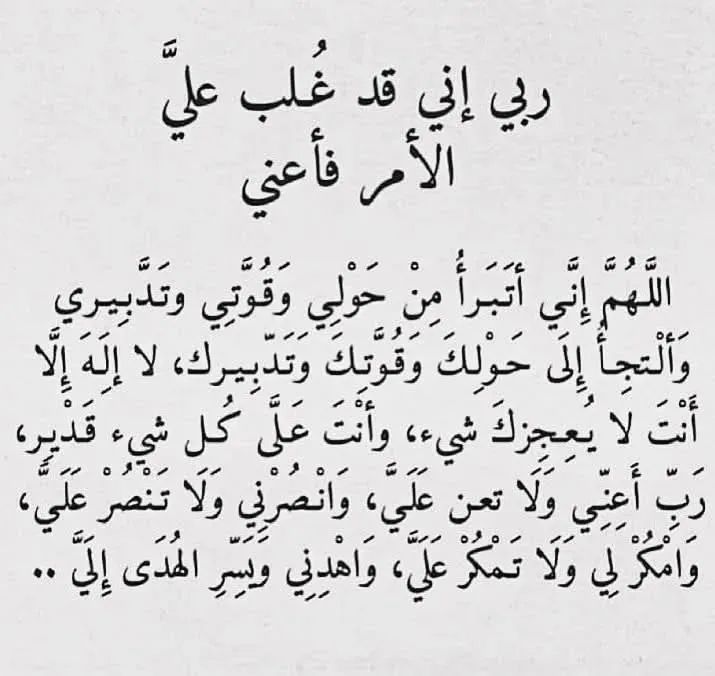 ربي إني قد غُلب عليَّ
الأمر فأعني
اللَّهُمَّ إِنَّي أتَبَرأُ مِنْ حَوْلِي وَقُوَّتِي وتَدَّبِيري
وَألْتجِأُ إِلَى حَولِكَ وَقُوَّتِكَ وَتَدّبِيرك، لا إلَهَ إِلَّا
أَنْتَ لا يُعِجِزكَ شيء، وأنْتَ عَلَّى كُل شيء قَدْيِر،
رَبِّ أَعِنِّيِ وَلَا تعن عَلَيَّ، وَانْصُرْنِي وَلَا تَنْصُرْ عَلَيَّ،
وَامْكُرْ لِي وَلَا تَمْكُرْ عَلَيَّ، وَاهْدِنِي وَيَسِّرِ الهُدَى إِلَيَّ ..